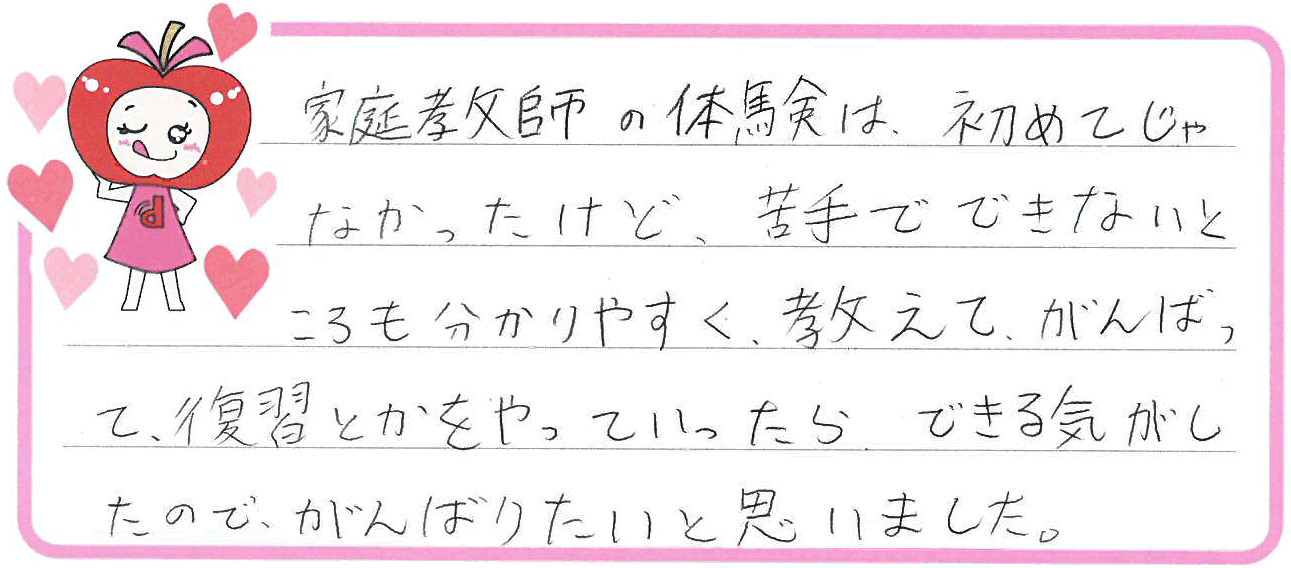 家庭教師の体験は、初めてじゃ
なかったけど、苦手でできないと
ころも分かりやすく、教えて、がんばっ
て、復習とかをやっていったら できる気がし
たので、がんばりたいと思いました。
d